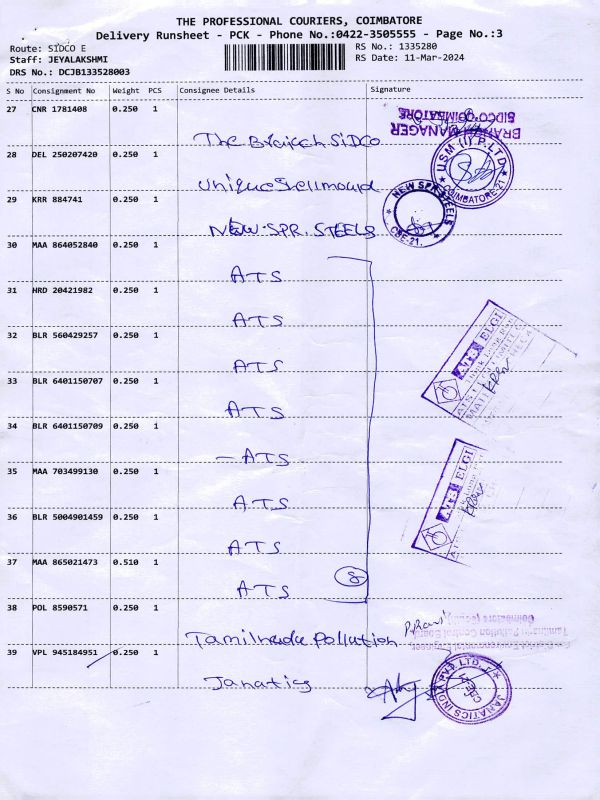 THE PROFESSIONAL COURIERS, COIMBATORE
Delivery Runsheet - PCK - Phone No.:0422-3505555 - Page No.:3
Route: SIDCO E
RS No.: 1335280
Staff: JEYALAKSHMI
RS Date: 11-Mar-2024
DRS No.: DCJB133528003
S No Consignment No Weight PCS Consignee Details Signature
27 CNR 1781408 0.250 1
The Branch SIDCO
BRANCH MANAGER
SIDCO COIMBATORE
28 DEL 250207420 0.250 1
Unique Shellmould
USM (I) P. LTD
COIMBATORE-21
29 KRR 884741 0.250 1
NEW SPR. STEELS
NEW SPR STEELS
CBE-21.
30 MAA 864052840 0.250 1
ATS
31 HRD 20421982 0.250 1
ATS
32 BLR 560429257 0.250 1
ATS
ATS ELGI
33 BLR 6401150707 0.250 1
ATS
34 BLR 6401150709 0.250 1
- ATS
35 MAA 703499130 0.250 1
ATS
ATS ELGI
36 BLR 5004901459 0.250 1
ATS
37 MAA 865021473 0.510 1
ATS
8
38 POL 8590571 0.250 1
Tamilnadu Pollution
Tamilnadu Pollution Control Board
39 VPL 945184951 0.250 1
Janatics
JANATICS INDIA PVT. LTD.